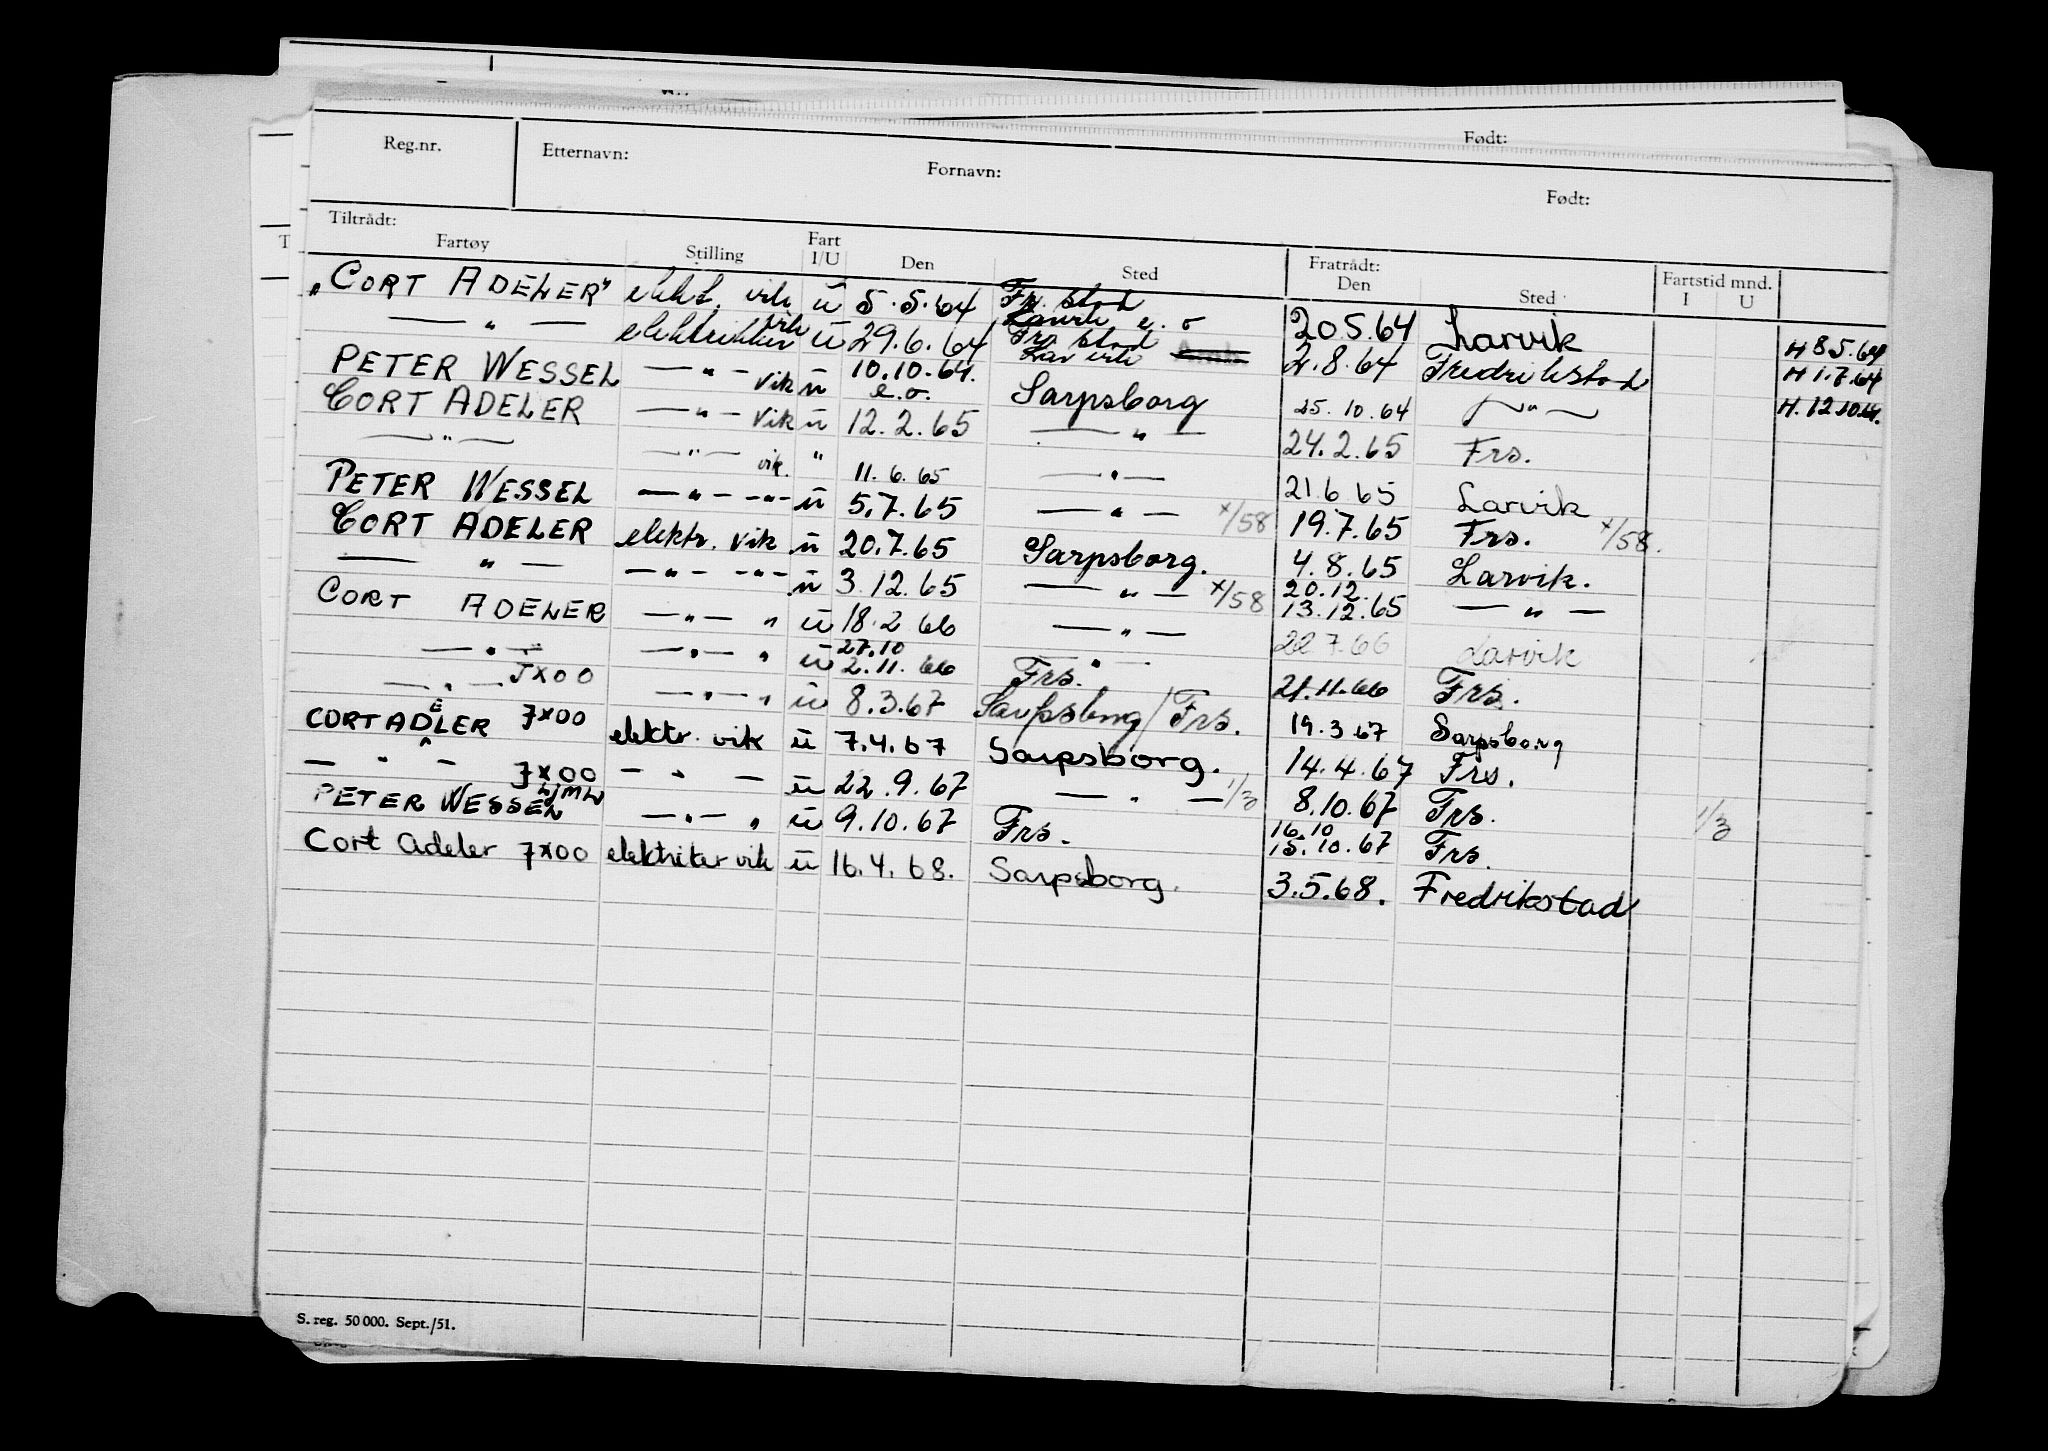 Født:
Reg.nr. Etternavn: Fornavn: Født:
Tiltrådt: Fratrådt:
Fartøy Stilling Fart I/U Den Sted Den Sted Fartstid mnd. I U
"CORT ADELER" elekt. vik ū 5.5.64 Fr. stad Larvik e. o 20.5.64 Larvik H 8 5.64
— " — elektriker vik ū 29.6.64 Fr. stad Larvik 2.8.64 Fredrikstad H 1.7.64
PETER WESSEL — " — vik ū 10.10.64. e.o. Sarpsborg 25.10.64 — " — H. 12.10.64.
CORT ADELER — " — vik ū 12.2.65 — " — 24.2.65 Frs.
— " — — " — vik. " 11.6.65 — " — 21.6.65 Larvik
PETER WESSEL — " — — " — ū 5.7.65 — " — x/58 19.7.65 Frs. x/58.
CORT ADELER elektr. vik ū 20.7.65 Sarpsborg. 4.8.65 Larvik.
— " — — " — — " — ū 3.12.65 — " — x/58 20.12. 13.12.65 — " —
CORT ADELER — " — " ū 18.2 66 — " — 22 7.66 Larvik
— " — — " — " ū 27.10 2.11.66 " Frs. 21.11.66 Frs.
— " — JXOO — " — " ū 8.3.67 Sarpsborg / Frs. 19.3 67 Sarpsborg
CORT ADELER JXOO elektr. vik ū 7.4.67 Sarpsborg. 14.4.67 Frs.
— " — JXOO — " — ū 22.9.67 — " — 1/3 8.10.67 Frs. 1/3
PETER WESSEL LJMW — " — " ū 9.10.67 Frs. 16.10 15.10.67 Frs.
Cort Adeler JXOO elektriker vik ū 16.4.68. Sarpsborg. 3.5.68. Fredrikstad
S. reg. 50 000. Sept./51.